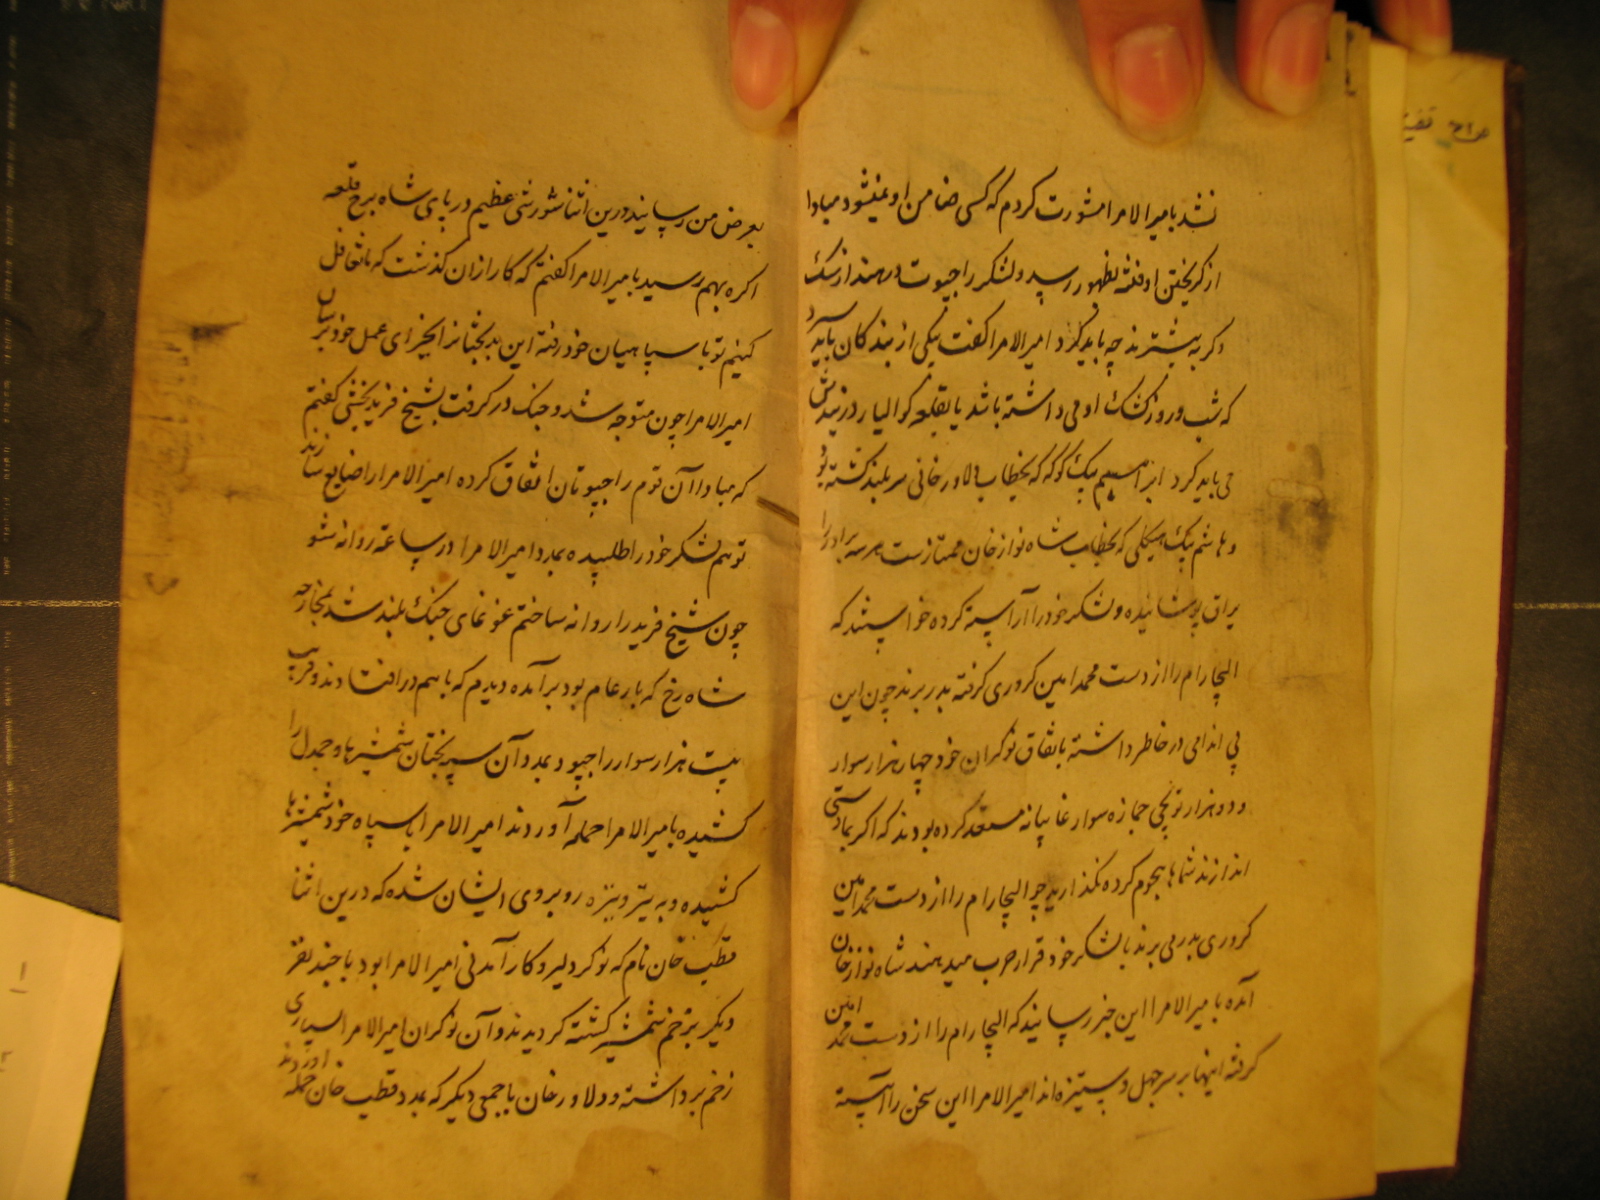 نشد بامیر الامرا مشورت کردم که کسی ضامن او نمیشود مبادا
از گریختن او فتنه بظهور رسد و لشکر راجپوت در هند از سک
و کربه بیشترند چه باید کرد امیر الامرا کفت یکی از بندکان باید سپرد
که شب و روز کشک او می داشته باشد یا بقلعه کوالیار در بندش
می باید کرد ابراهیم بیک کوکه که بخطاب دلاور خانی سربلند کشته بود
و هاشم بیک که بخطاب شاه نواز خان ممتاز است هر سه برادر را
یراق پوشانیده و لشکر خود را آراسته کرده خواستند که
الیچارام را از دست محمد امین کروری کرفته بدر برند چون این
بی اندامی در خاطر داشته باتفاق نوکران خود چهار هزار سوار
و دو هزار توپچی جمازه سوار غایبانه مستعد کرده بودند که اکر
اندازند شماها هجوم کرده نکذارید چو الیچارام را از دست محمد امین
کروری بدر می برند با لشکر خود قرار حرب میدهند شاه نواز خان
آمده با میر الامرا این خبر رسانید که الیچارام را از دست محمد امین
کرفته اینها بر سر جهل و ستیزه اند امیر الامرا این سخن را آهسته
بعرض من رسانید درین اثنا شورشی عظیم در پای شاه برج قلعه
اکره بهم رسید بامیر الامرا کفتم که کار از ان کذشت که ما تغافل
کنیم تو با سپاهیان خود رفته این بدبختانرا بجزای عمل خود برسان
امیر الامرا چون متوجه شد و جنک در کرفت بشیخ فرید بخشی کفتم
که مبادا آن قوم راجپوتان اتفاق کرده امیر الامرا را ضایع سازند
تو هم لشکر خود را طلبیده بمدد امیر الامرا در ساعه روانه شو
چون شیخ فرید را روانه ساختم غوغای جنک بلند شد
شاه رخ که بار عام بود بر آمده دیدم که با هم در افتادند و قریب
بیست هزار سوار راجپوت بمدد آن سیه بختان شمشیرها و جمدهر را
کشیده بامیر الامرا حمله آوردند امیر الامرا با سپاه خود شمشیرها
کشیده و به تیر و نیزه رو بروی ایشان شده که درین اثنا
قطب خان نام که نوکر دلیر و کار آمدنی امیر الامرا بود با چند نفر
دیکر بزخم شمشیر کشته کردیدند و آن نوکران امیر الامرا بسیاری
زخم برداشته و دلاور خان با جمعی دیکر که بمدد قطب خان حمله آوردند